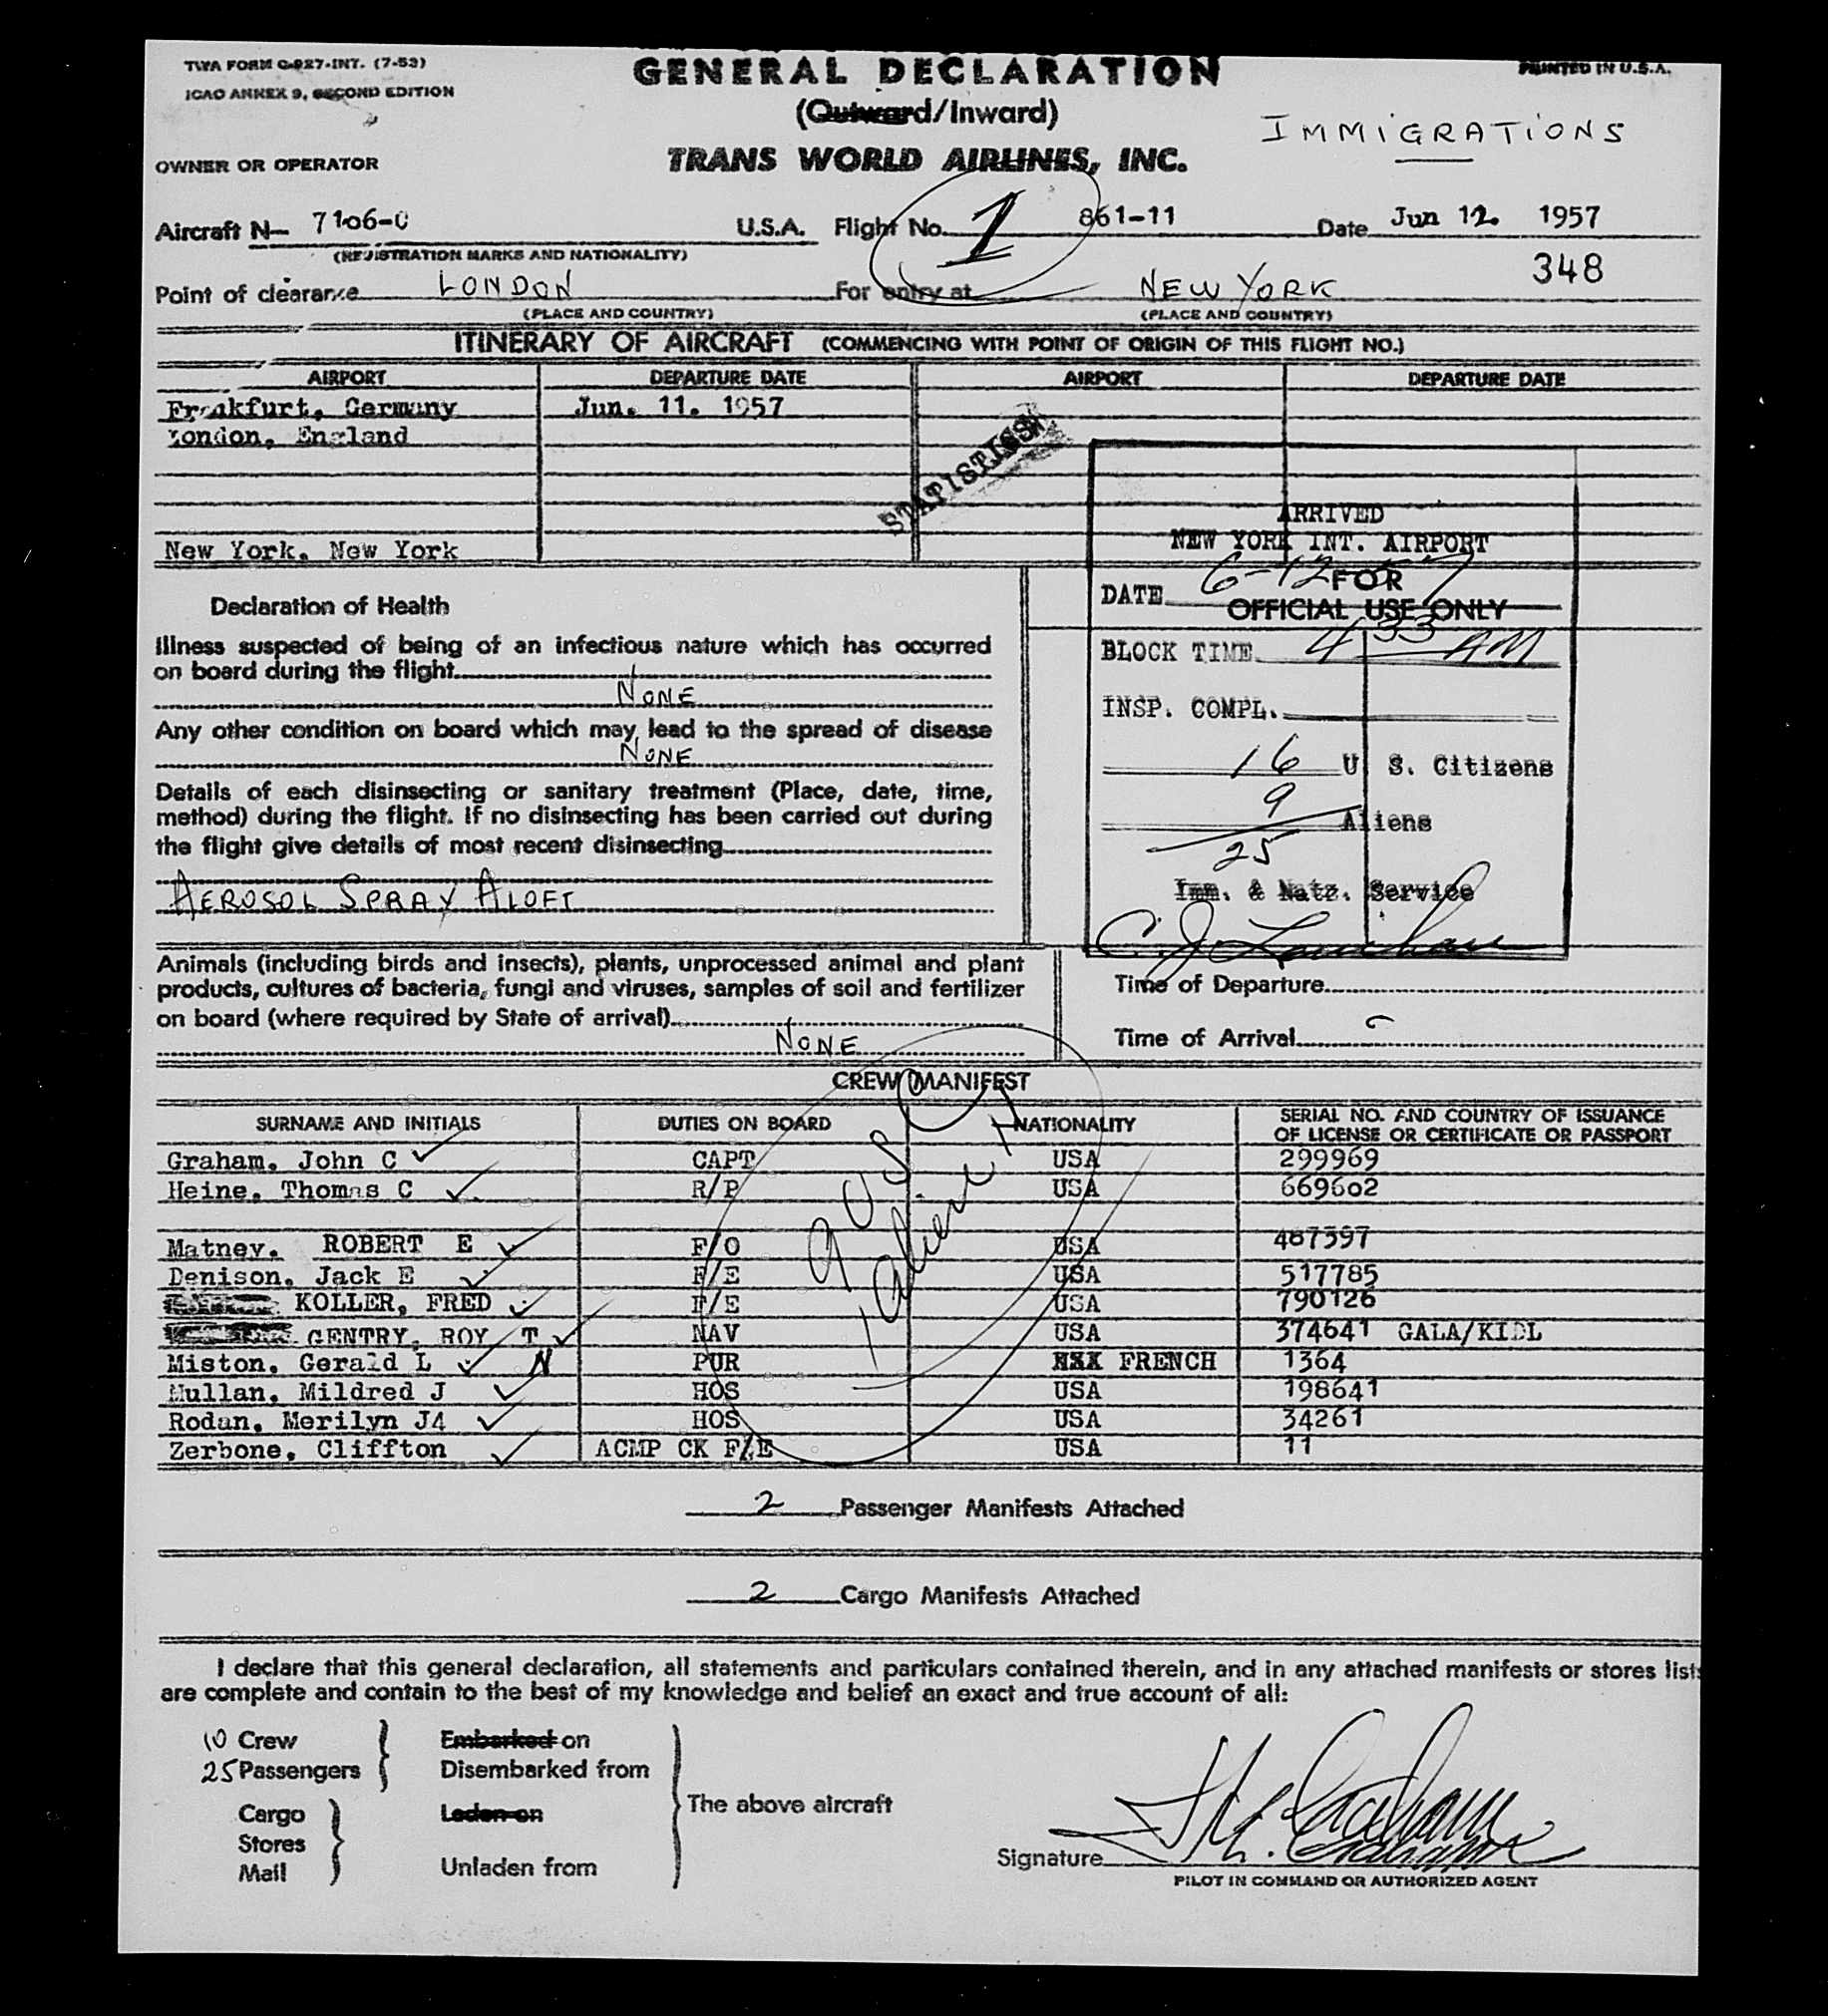 TWA FORM C-927-INT. (7-53)
ICAO ANNEX 9, SECOND EDITION
PRINTED IN U.S.A.
GENERAL DECLARATION
(Outward/Inward)
IMMIGRATIONS
OWNER OR OPERATOR
TRANS WORLD AIRLINES, INC.
Aircraft N- 7106-C U.S.A. Flight No. 1 861-11 Date Jun 12. 1957
(REGISTRATION MARKS AND NATIONALITY)
348
Point of clearance LONDON For entry at NEW YORK
(PLACE AND COUNTRY) (PLACE AND COUNTRY)
ITINERARY OF AIRCRAFT (COMMENCING WITH POINT OF ORIGIN OF THIS FLIGHT NO.)
AIRPORT DEPARTURE DATE AIRPORT DEPARTURE DATE
Frankfurt, Germany Jun. 11. 1957
London, England
STATISTICS
New York, New York
ARRIVED
NEW YORK INT. AIRPORT
DATE 6-12-57
FOR
OFFICIAL USE ONLY
BLOCK TIME 4 33 AM
INSP. COMPL.
16 U S. Citizens
9 Aliens
25
Imm. & Natz. Service
C. J.
Declaration of Health
Illness suspected of being of an infectious nature which has occurred
on board during the flight
NONE
Any other condition on board which may lead to the spread of disease
NONE
Details of each disinsecting or sanitary treatment (Place, date, time,
method) during the flight. If no disinsecting has been carried out during
the flight give details of most recent disinsecting
AEROSOL SPRAY ALOFT
Animals (including birds and insects), plants, unprocessed animal and plant
products, cultures of bacteria, fungi and viruses, samples of soil and fertilizer
on board (where required by State of arrival)
NONE
Time of Departure
Time of Arrival
CREW MANIFEST
SURNAME AND INITIALS DUTIES ON BOARD NATIONALITY SERIAL NO. AND COUNTRY OF ISSUANCE
OF LICENSE OR CERTIFICATE OR PASSPORT
9 USC
1 Alien
Graham, John C CAPT USA 299969
Heine, Thomas C R/P USA 669602
Matney, ROBERT E F/O USA 467397
Denison, Jack E F/E USA 517785
KOLLER, FRED F/E USA 790126
GENTRY, ROY T NAV USA 374641 GALA/KIDL
Miston, Gerald L N PUR XXX FRENCH 1364
Mullan, Mildred J HOS USA 198641
Rodan, Merilyn J4 HOS USA 34261
Zerbone, Cliffton ACMP CK F/E USA 11
2 Passenger Manifests Attached
2 Cargo Manifests Attached
I declare that this general declaration, all statements and particulars contained therein, and in any attached manifests or stores lists
are complete and contain to the best of my knowledge and belief an exact and true account of all:
10 Crew
25 Passengers
Embarked on
Disembarked from
Cargo
Stores
Mail
Laden on
Unladen from
The above aircraft
Signature J.C. Graham
PILOT IN COMMAND OR AUTHORIZED AGENT